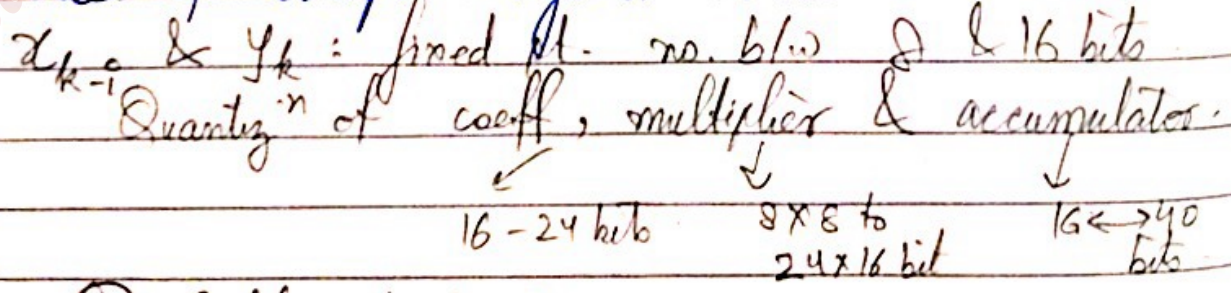 x_{k-i} & y_k : fixed pt. no. b/w 8 & 16 bits
Quantiz^n of coeff, multiplier & accumulator.
16-24 bits 8×8 to 16↔40
24×16 bit bits